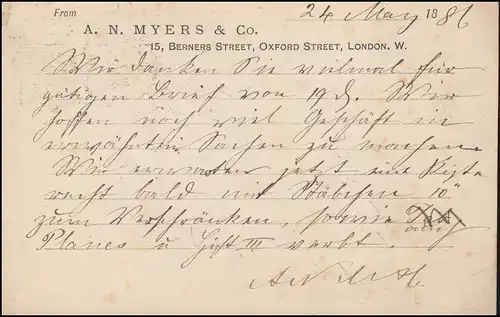 From 24 May 1886
A. N. MYERS & Co.
15, BERNERS STREET, OXFORD STREET, LONDON. W.
Wir danken Sie vielmal für
gütigen Brief von 19 d. Wir
hoffen noch viel Geschäft in
erwähnten Sachen zu machen.
Wir erwarten jetzt eine Kiste
recht bald mit Stäbchen 10"
zum Verschränken, sowie
auch
Planes u Heft III verbt.